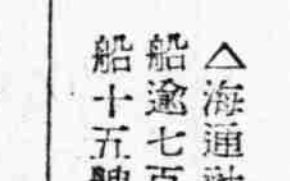 △海通
船逾七百
船十五艘